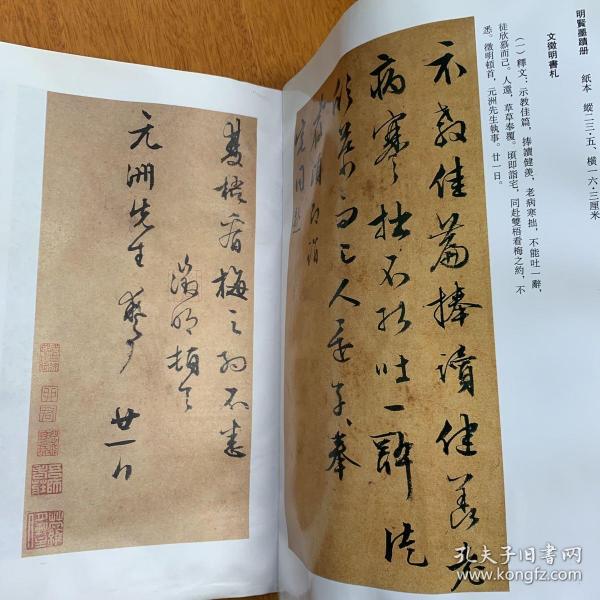 明賢墨蹟册　紙本　縱二三·五、橫一六·三厘米
文徵明書札
（一）釋文：示教佳篇，捧讀健羨，老病寒拙，不能吐一辭，
徒欣慕而已。人還，草草奉覆。頃即詣宅，同赴雙梧看梅之約，不
悉。徵明頓首，元洲先生執事。廿一日。
示教佳篇捧讀健羨老
病寒拙不能吐一辭徒
欣慕而已人還草草奉
覆頃即詣
宅同赴
雙梧看梅之約不悉
徵明頓首
元洲先生 執事 廿一日
孔夫子旧书网
www.kongfz.com